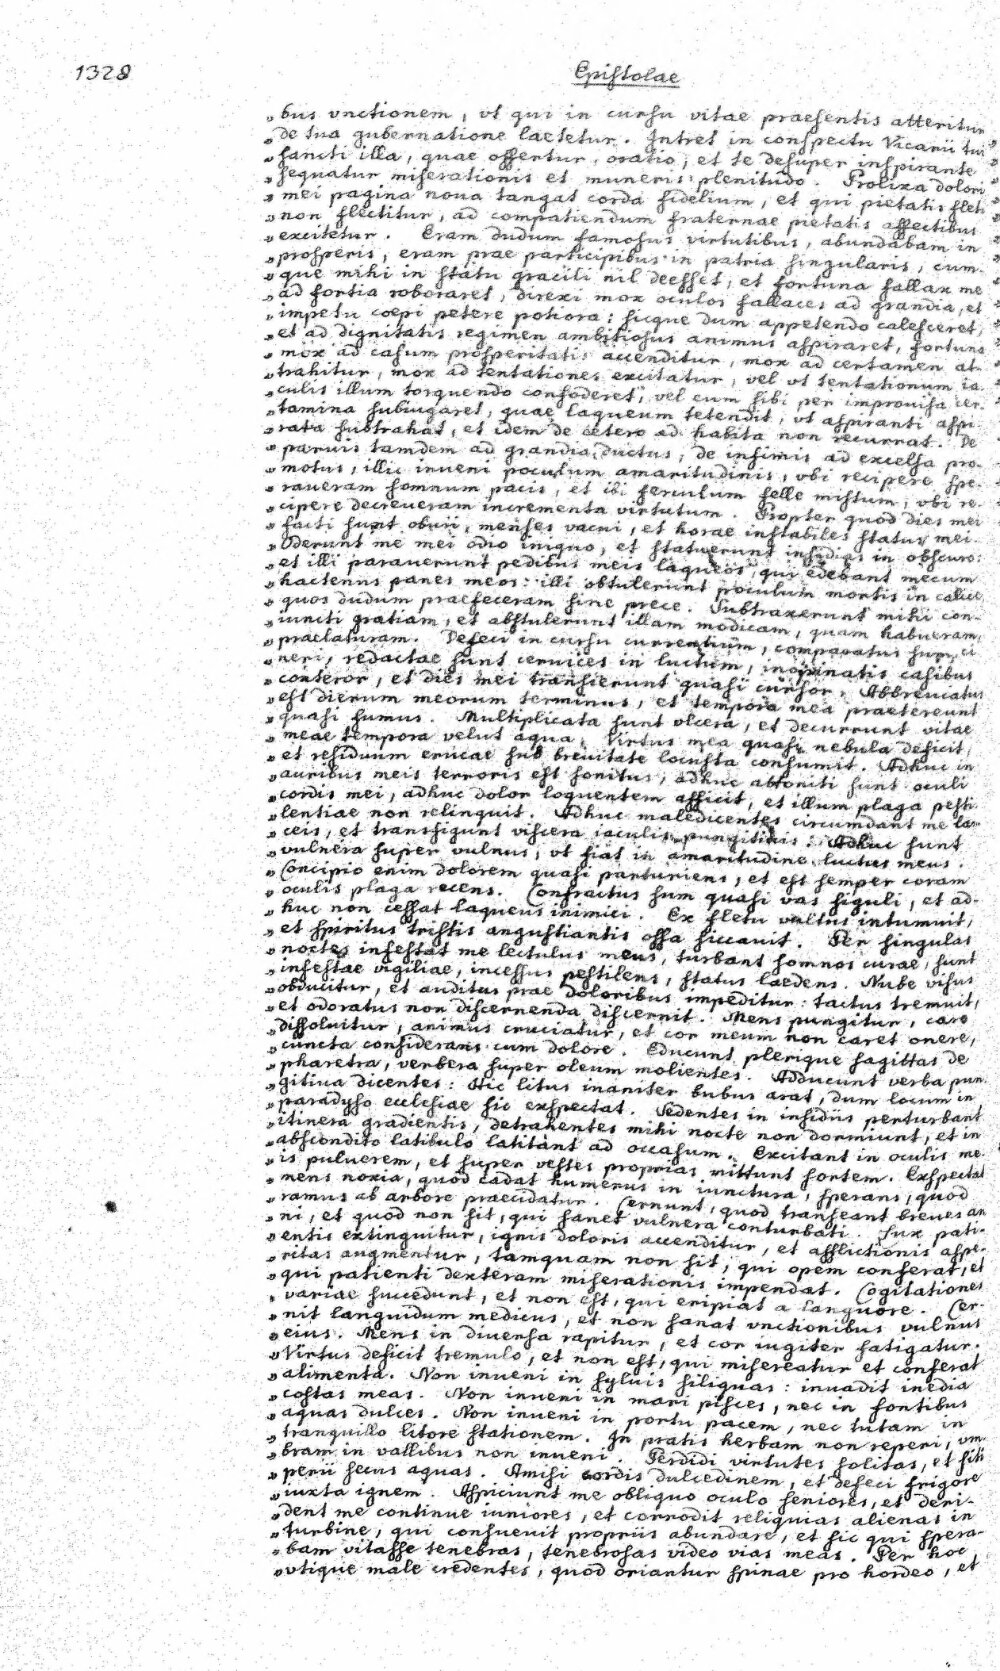 1328
Epistolae
„bus vnctionem, vt qui in cursu vitae praesentis atteritur
„de tua gubernatione laetetur. Intret in conspectu Vicarii tui
„sancti illa, quae offertur, oratio, et te desuper inspirante
„sequatur miserationis et muneris plenitudo. Prolixa dolori
„mei pagina noua tangat corda fidelium, et qui pietatis fletu
„non flectitur, ad compatiendum fraternae pietatis affectibus
„excitetur. Eram dudum famosus virtutibus, abundabam in
„prosperis, eram prae participibus in patria singularis, cum-
„que mihi in statu gracili nil deesset, et fortuna fallax me
„ad fortia roboraret, direxi mox oculos fallaces ad grandia, et
„impetu coepi petere potiora: sicque dum appetendo calesceret,
„et ad dignitatis regimen ambitiosus animus aspiraret, fortuna
„mox ad casum prosperitatis accenditur, mox ad certamen at-
„trahitur, mox ad tentationes excitatur, vel vt tentationum ia-
„culis illum torquendo confoderet, vel eum sibi per improuisa cer-
„tamina subiugaret, quae laqueum tetendit, vt aspiranti aspi-
„rata subtrahat, et idem de cetero ad habita non recurrat. De
„paruis tamdem ad grandia ductus, de infimis ad excelsa pro-
„motus, illic inueni poculum amaritudinis, vbi recipere spe-
„raueram somnum pacis, et ibi ferculum felle mistum, vbi re-
„cipere decreueram incrementa virtutum. Propter quod dies mei
„facti sunt obuii, menses vacui, et horae instabiles status mei.
„Oderunt me mei odio iniquo, et statuerunt insidias in obscuro:
„et illi parauerunt pedibus meis laqueos, qui edebant mecum
„hactenus panes meos: illi obtulerunt poculum mortis in calice,
„quos dudum praefeceram sine prece. Subtraxerunt mihi con-
„iuncti gratiam, et abstulerunt illam modicam, quam habueram,
„praelaturam. Defeci in cursu currentium, comparatus sum ci-
„neri, redactae sunt cervices in luctum, inopinatis casibus
„conteror, et dies mei transierunt quasi cursor. Abbreuiatus
„est dierum meorum terminus, et tempora mea praetereunt
„quasi fumus. Multiplicata sunt vlcera, et decurrunt vitae
„meae tempora velut aqua. Virtus mea quasi nebula deficit,
„et residuum erucae sub breuitate locusta consumit. Adhuc in
„auribus meis terroris est sonitus, adhuc attoniti sunt oculi
„cordis mei, adhuc dolor loquentem afficit, et illum plaga pesti-
„lentiae non relinquit. Adhuc maledicentes circumdant me lan-
„ceis, et transfigunt viscera iaculis pungitiuis: Adhuc sunt
„vulnera super vulnus, vt fiat in amaritudine luctus meus.
„Concipio enim dolorem quasi parturiens, et est semper coram
„oculis plaga recens. Confractus sum quasi vas figuli, et ad-
„huc non cessat laqueus inimici. Ex fletu vultus intumuit,
„et spiritus tristis angustiantis ossa siccauit. Per singulas
„noctes infestat me lectulus meus, turbant somnos curae, sunt
„infestae vigiliae, incessus pestilens, status laedens. Nube visus
„obducitur, et auditus prae doloribus impeditur: tactus tremuit,
„et odoratus non discernenda discernit. Mens pungitur, caro
„dissoluitur, animus cruciatur, et cor meum non caret onere,
„cuncta considerans cum dolore. Educunt plerique sagittas de
„pharetra, verbera super oleum molientes. Adducunt verba pun-
„gitiua dicentes: Hic litus inaniter bubus arat, dum locum in
„paradyso ecclesiae sic exspectat. Sedentes in insidiis perturbant
„itinera gradientis, detrahentes mihi nocte non dormiunt, et in
„abscondito latibulo latitant ad occasum. Excitant in oculis me-
„is puluerem, et super vestes proprias mittunt sortem. Exspectat
„mens noxia, quod cadat humerus in iunctura, sperans, quod
„ramus ab arbore praecidatur. Cernunt, quod transeant breues an-
„ni, et quod non sit, qui sanet vulnera conturbati. Lux pati-
„entis extinguitur, ignis doloris accenditur, et afflictionis aspe-
„ritas augmentur, tamquam non sit, qui opem conferat, et
„qui patienti dexteram miserationis impendat. Cogitationes
„variae succedunt, et non est, qui eripiat a languore. Cer-
„nit languidum medicus, et non sanat vnctionibus vulnus
„eius. Mens in diuersa rapitur, et cor iugiter fatigatur.
„Virtus deficit tremulo, et non est, qui misereatur et conferat
„alimenta. Non inueni in syluis siliquas: inuadit inedia
„costas meas. Non inueni in mari pisces, nec in fontibus
„aquas dulces. Non inueni in portu pacem, nec tutam in
„tranquillo litore stationem. In pratis herbam non reperi, vm-
„bram in vallibus non inueni. Perdidi virtutes solitas, et siti
„perii secus aquas. Amisi cordis dulcedinem, et defeci frigore
„iuxta ignem. Aspiciunt me obliquo oculo seniores, et deri-
„dent me continue iuniores, et corrodit reliquias alienas in
„turbine, qui consueuit propriis abundare, et sic qui spera-
„bam vitasse tenebras, tenebrosas video vias meas. Per hoc
„vtique male credentes, quod oriantur spinae pro hordeo, et